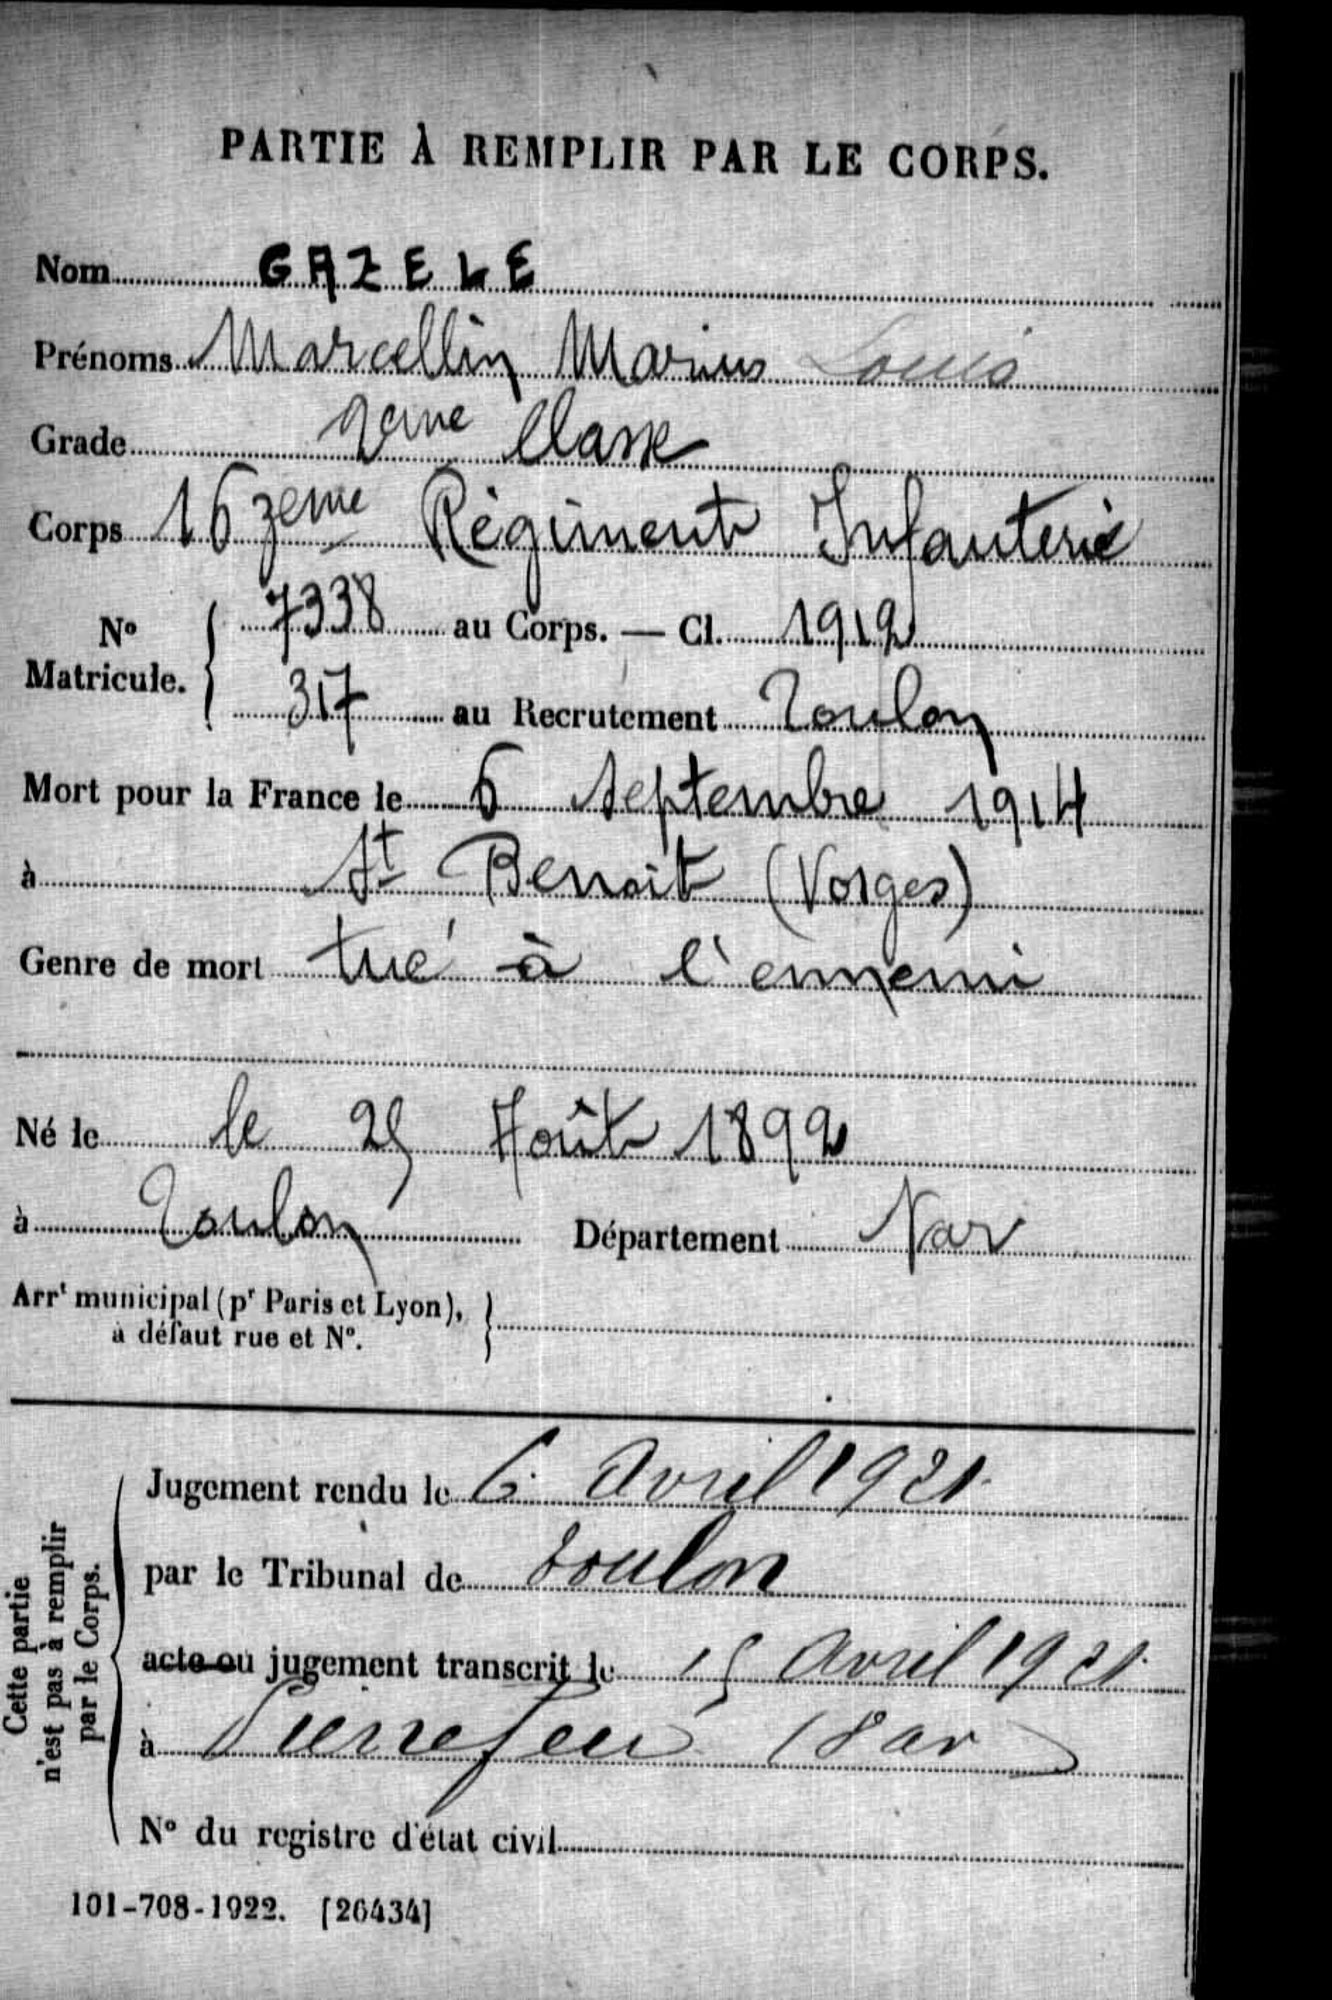 PARTIE À REMPLIR PAR LE CORPS.
Nom GAZELE
Prénoms Marcellin Marius Louis
Grade 2eme Classe
Corps 163eme Régiment Infanterie
No Matricule. { 7338 au Corps. — Cl. 1912
317 au Recrutement Toulon
Mort pour la France le 6 Septembre 1914
à St Benoit (Vosges)
Genre de mort tué à l'ennemi
Né le le 25 Août 1892
à Toulon Département Var
Arrt municipal (pr Paris et Lyon), }
à défaut rue et No.
Cette partie
n'est pas à remplir
par le Corps.
Jugement rendu le 6 Avril 1921
par le Tribunal de Toulon
acte ou jugement transcrit le 15 Avril 1921
à Pierrefeu (Var)
No du registre d'état civil
101-708-1922. [26434]